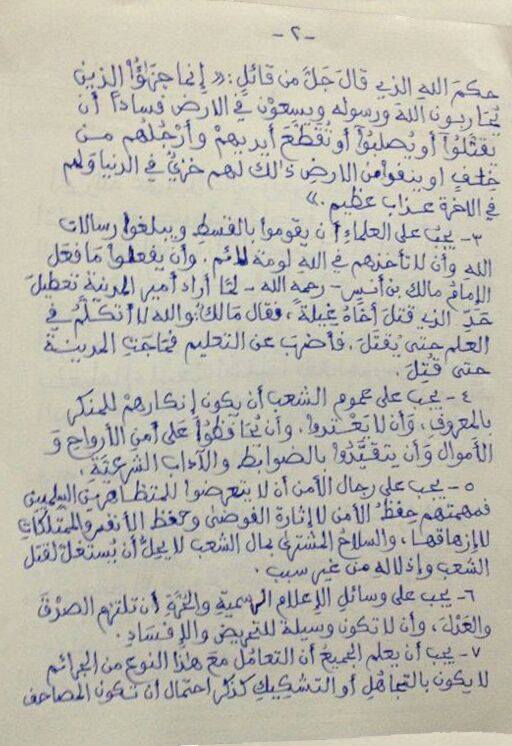 -٢-
حكمَ اللهِ الذي قالَ جَلَّ من قائلٍ: « إنما جزاؤُا الذين
يُحَاربون اللهَ ورسوله ويسعوْن في الارض فساداً أن
يقتَّلُوْا أو يُصلبُوْا أو تُقَطَّعَ أيديهمْ وأرْجُلُهم من
خلفٍ او ينفوا من الارضِ ذالك لهم خزيٌ في الدنيا ولهم
في الآخرة عذاب عظيم. »
٣- يجبُ على العلماءِ أن يقوموا بالقسطِ ويبلغوا رسالات
الله وأن لا تأخذهم في اللهِ لومة لائم. وأن يفعلوا مَا فعَل
الإمامُ مالك بن أنسٍ - رحمه الله - لمّا أراد أمير المدينةِ تعطيلَ
حَدِّ الذي قتلَ أخَاهُ غِيلةً، فقال مَالك: والله لا أتكلّمُ في
العلم حتى يُقتَلَ. فأضربَ عن التعليم فهَاجَتِ المدينة
حتى قُتِلَ.
٤- يجبُ على عموم الشعب أن يكون إنكارهمْ للمنكرِ
بالمعروفِ، وَأن لا يَعْتدوا، وأن يُحَافظُوْا عَلى أمن الأرواح وَ
الأموال وَأن يتقيَّدُوا بالضوابط والآداب الشرعيّةِ.
٥- يجبُ على رجال الأمن أن لا يتعرضوا للمتظاهرين السلميين
فمهمتهم حِفظُ الأمن لا إثارة الفوضى وحفظ الأنفس والممتلكاتِ
لا إزهاقها، والسلاحُ المشترى بمال الشعب لا يحِلُّ أن يُستغلَّ لقتل
الشعب وإذلالهِ من غير سبب.
٦- يجبُ على وسائلِ الإعلام الرسميّة والحُرَّةِ أن تلتزم الصدْقَ
والعَدْلَ، وأن لا تكون وسيلة للتحريض والإفسَادِ.
٧- يجبُ أن يعلم الجميعُ أن التعامُل معَ هذا النوع من الجرائم
لا يكون بالتجاهُلِ أو التشكيكِ كذكر احتمال ان تكون المصاحف